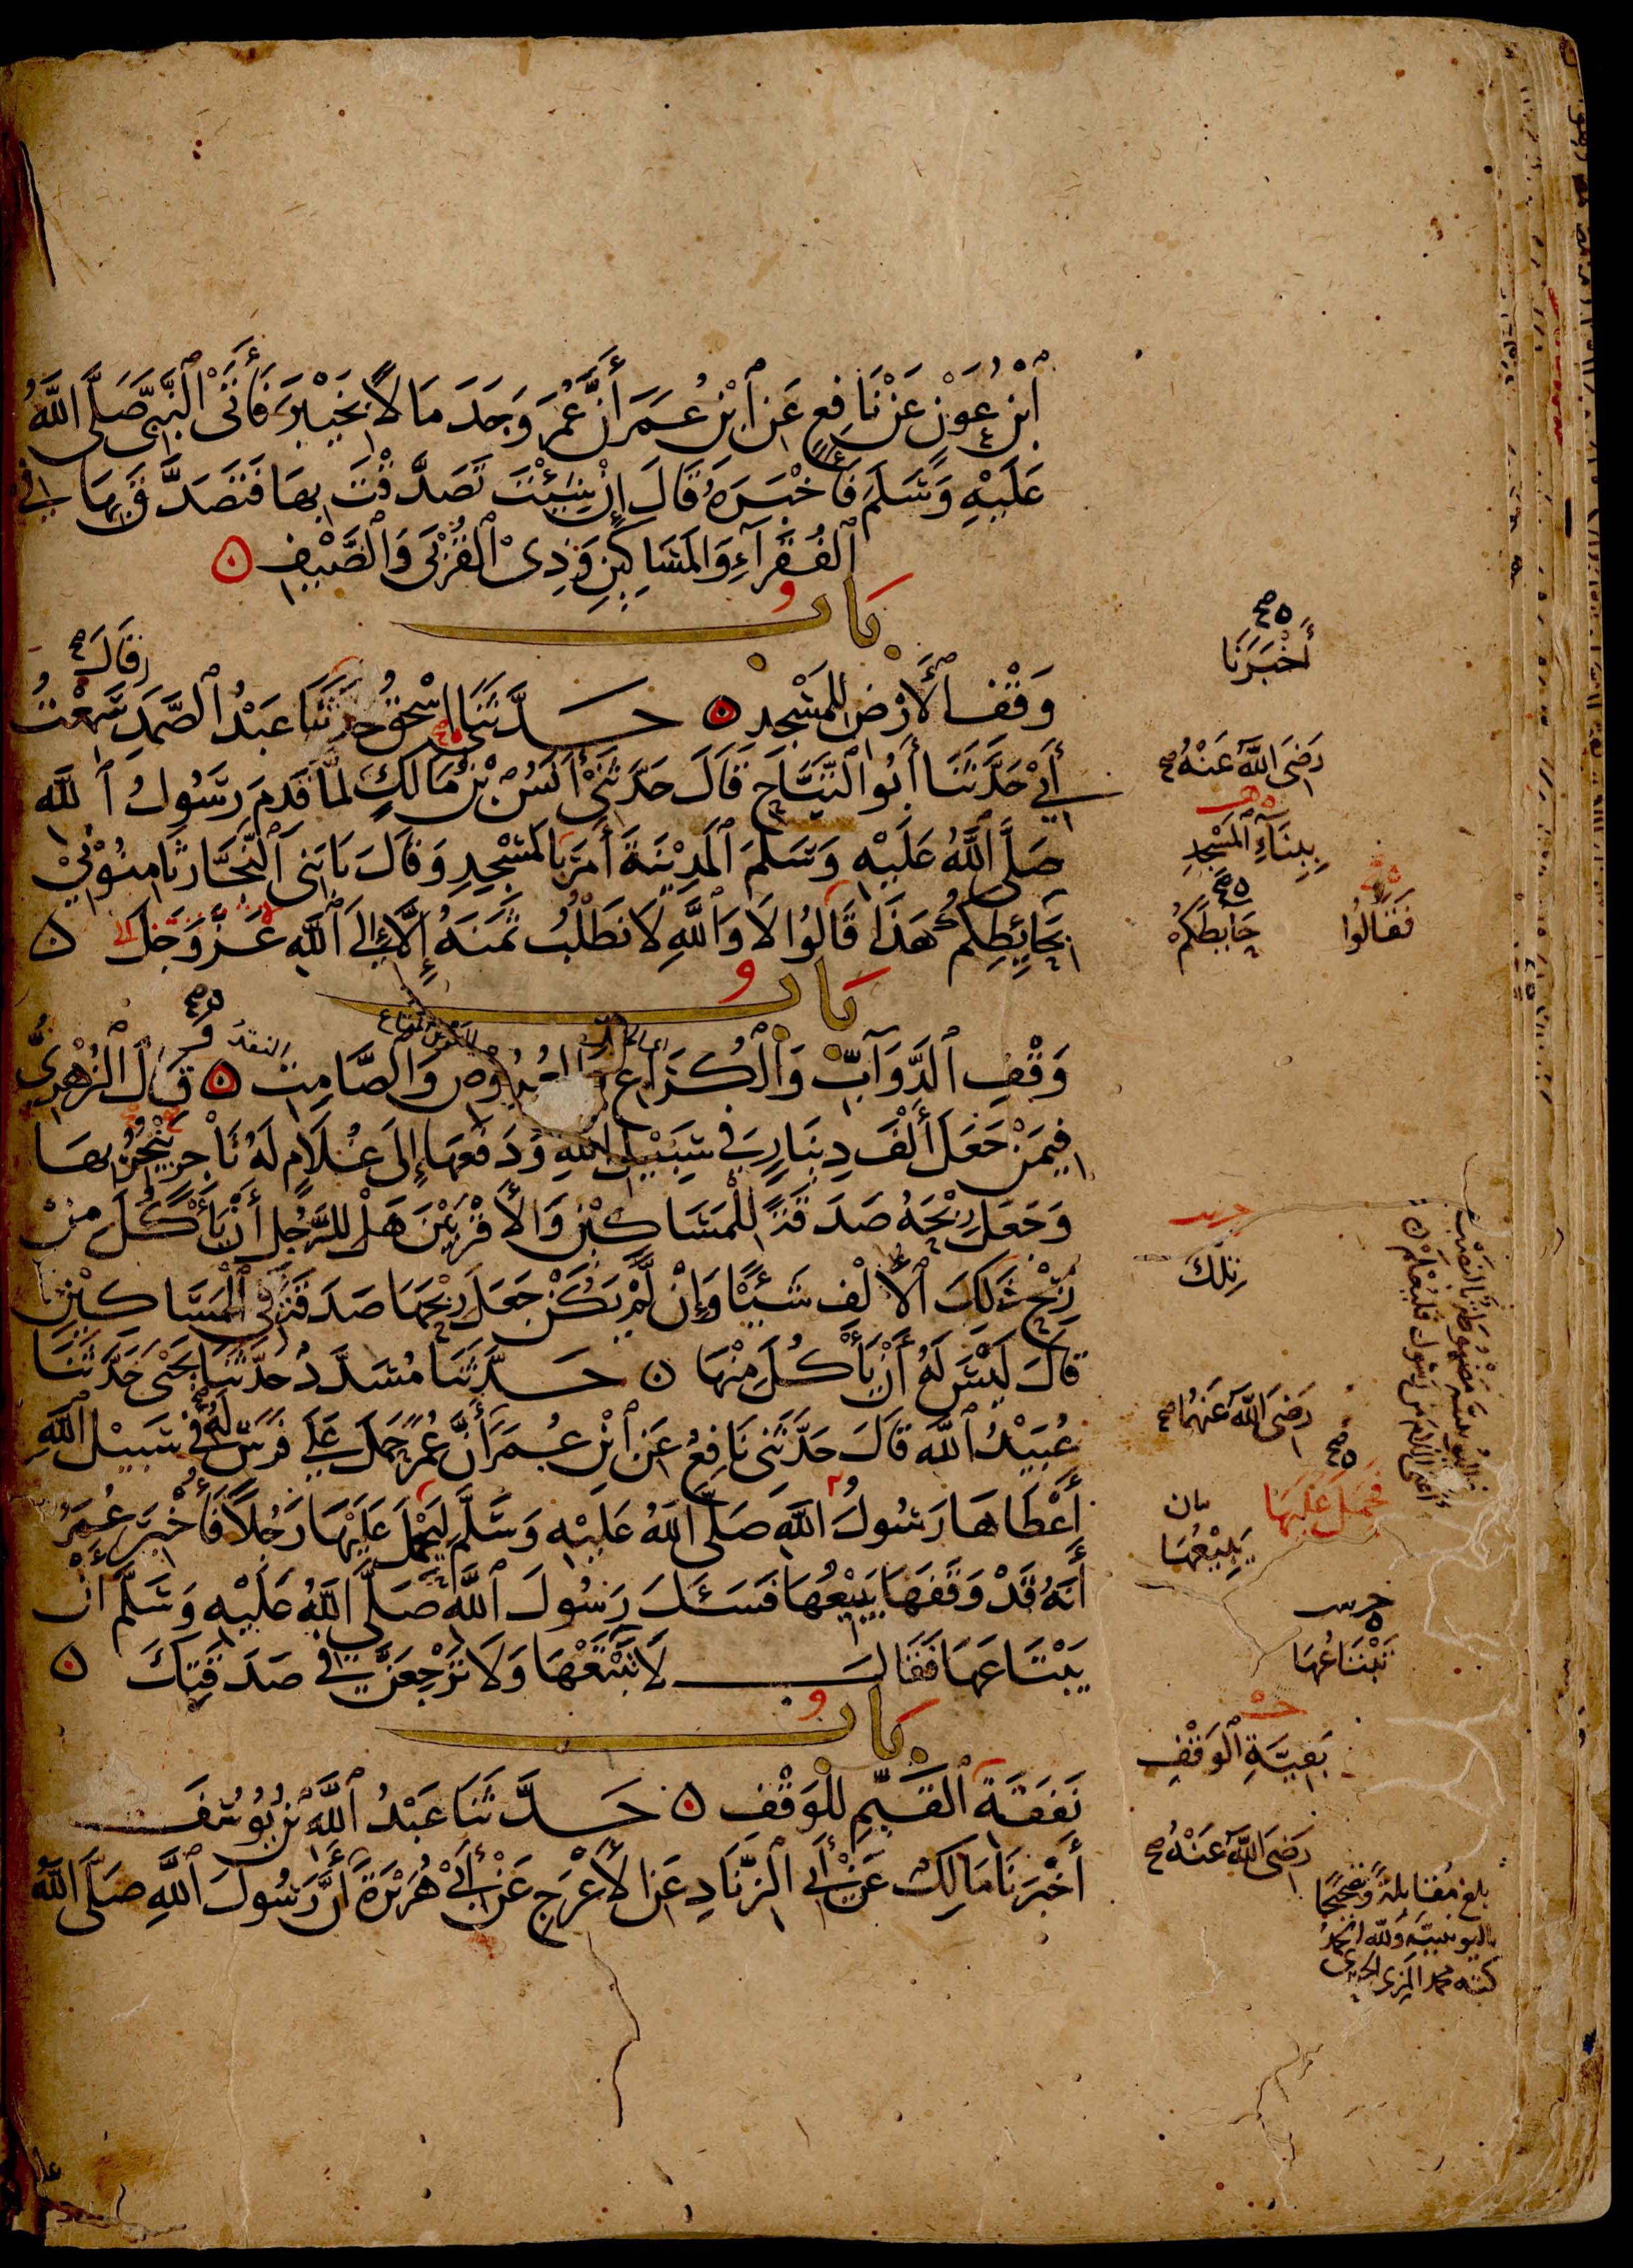 ٱبْنُ عَوْنٍ عَنْ نَافِعٍ عَنِ ٱبْنِ عُمَرَ أَنَّ عُمَرَ وَجَدَ مَالًا بِخَيْبَرَ فَأَتَى ٱلنَّبِيَّ صَلَّى اللَّهُ
عَلَيْهِ وَسَلَّمَ فَأَخْبَرَهُ قَالَ إِنْ شِئْتَ تَصَدَّقْتَ بِهَا فَتَصَدَّقَ بِهَا فِي
ٱلْفُقَرَآءِ وَالْمَسَاكِينِ وَذِي ٱلْقُرْبَى وَٱلضَّيْفِ
بَابُ
قَالَ صح
وَقْفِ ٱلْأَرْضِ لِلْمَسْجِدِ حَدَّثَنَا إِسْحٰقُ حَدَّثَنَا عَبْدُ ٱلصَّمَدِ سَمِعْتُ
أَبِي حَدَّثَنَا أَبُو ٱلتَّيَّاحِ قَالَ حَدَّثَنِي أَنَسُ بْنُ مَالِكٍ لَمَّا قَدِمَ رَسُولُ ٱللَّه
صَلَّى ٱللَّهُ عَلَيْهِ وَسَلَّمَ ٱلْمَدِيْنَةَ أَمَرَ بِالْمَسْجِدِ وَقَالَ يَا بَنِي ٱلنَّجَّارِ ثَامِنُوْنِيْ
بِحَائِطِكُمْ هَذَا قَالُوا لَا وَٱللَّهِ لَا نَطْلُبُ ثَمَنَهُ إِلَّا إِلَى ٱللَّهِ عَزَّ وَجَلَّ
بَابُ
وَقْفِ ٱلدَّوَآبِّ وَٱلْكُرَاعِ وَالعُرُوْضِ وَٱلصَّامِتِ قَالَ ٱلزُّهْرِيُّ
فِيمَنْ جَعَلَ أَلْفَ دِينَارٍ فِي سَبِيْلِ اللَّهِ وَدَفَعَهَا إِلَى غُلَامٍ لَهُ تَاجِرٍ يَتْجُرُ بِهَا
وَجَعَلَ رِبْحَهُ صَدَقَةً لِلْمَسَاكِيْنِ وَالْأَقْرَبِيْنَ هَلْ لِلرَّجُلِ أَنْ يَأْكُلَ مِنْ
رِبْحِ ذَلِكَ ٱلْأَلْفِ شَيْئًا وَإِنْ لَمْ يَكُنْ جَعَلَ رِبْحَهَا صَدَقَةً فِي ٱلْمَسَاكِيْنِ
قَالَ لَيْسَ لَهُ أَنْ يَأْكُلَ مِنْهَا حَدَّثَنَا مُسَدَّدٌ حَدَّثَنَا يَحْيَى حَدَّثَنَا
عُبَيْدُ ٱللَّه قَالَ حَدَّثَنِي نَافِعٌ عَنِ ٱبْنِ عُمَرَ أَنَّ عُمَرَ حَمَلَ عَلَى فَرَسٍ لَهُ فِي سَبِيْلِ ٱللَّهِ
أَعْطَاهَا رَسُولُ ٱللَّهِ صَلَّى ٱللَّهُ عَلَيْهِ وَسَلَّمَ لِيَحْمِلَ عَلَيْهَا رَجُلًا فَأُخْبِرَ عُمَرُ
أَنَّهُ قَدْ وَقَفَهَا يَبِيْعُهَا فَسَئَلَ رَسُولَ ٱللَّه صَلَّى ٱللَّهُ عَلَيْهِ وَسَلَّمَ أَنْ
يَبْتَاعَهَا فَقَالَ لَا تَبْتَعْهَا وَلَا تَرْجِعَنَّ فِي صَدَقَتِكَ
بَابُ
نَفَقَةِ ٱلْقَيِّمِ لِلْوَقْفِ حَدَّثَنَا عَبْدُ ٱللَّه بْنُ يُوْسُفَ
أَخْبَرَنَا مَالِكٌ عَنْ أَبِي ٱلزِّنَادِ عَنِ الْأَعْرَجِ عَنْ أَبِيْ هُرَيْرَةَ أَنَّ رَسُولَ ٱللَّهِ صَلَّى ٱللَّهُ
أَخْبَرَنَا
رَضِيَ اللَّهُ عَنْهُ صح
بِبِنَآءِ ٱلْمَسْجِدِ
فَقَالُوا
حَايِطَكُمْ
تِلْكَ
رَضِيَ اللَّهُ عَنْهُمَا صح
فَحَمَلَ عَلَيْهَا
يَبِيْعُهَا
بَقِيَّةِ ٱلْوَقْفِ
رَضِيَ اللَّهُ عَنْهُ صح
بلغ مقابلةً وتصحيحًا
باليونينية ولله الحمد
كتبه محمد المزي الحريري